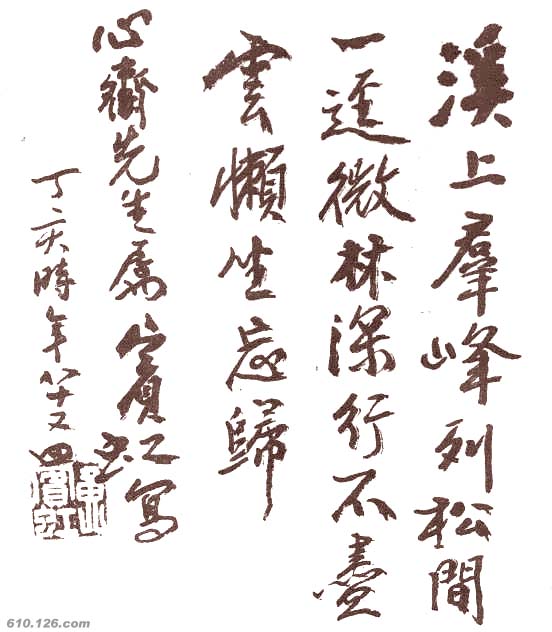 溪上羣峰列松間
一逕微林深行不盡
雲懶坐忘歸
心齋先生屬賓虹寫
丁亥時年八十又四
黃賓虹
610.126.com